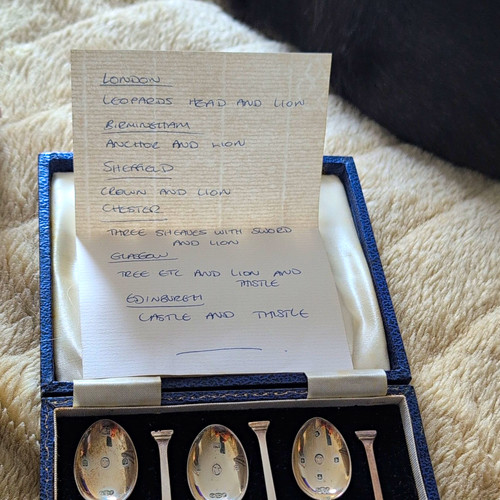 LONDON
LEOPARDS HEAD AND LION
BIRMINGHAM
ANCHOR AND LION
SHEFFIELD
CROWN AND LION
CHESTER
THREE SHEAVES WITH SWORD
AND LION
GLASGOW
TREE ETC AND LION AND
THISTLE
EDINBURGH
CASTLE AND THISTLE